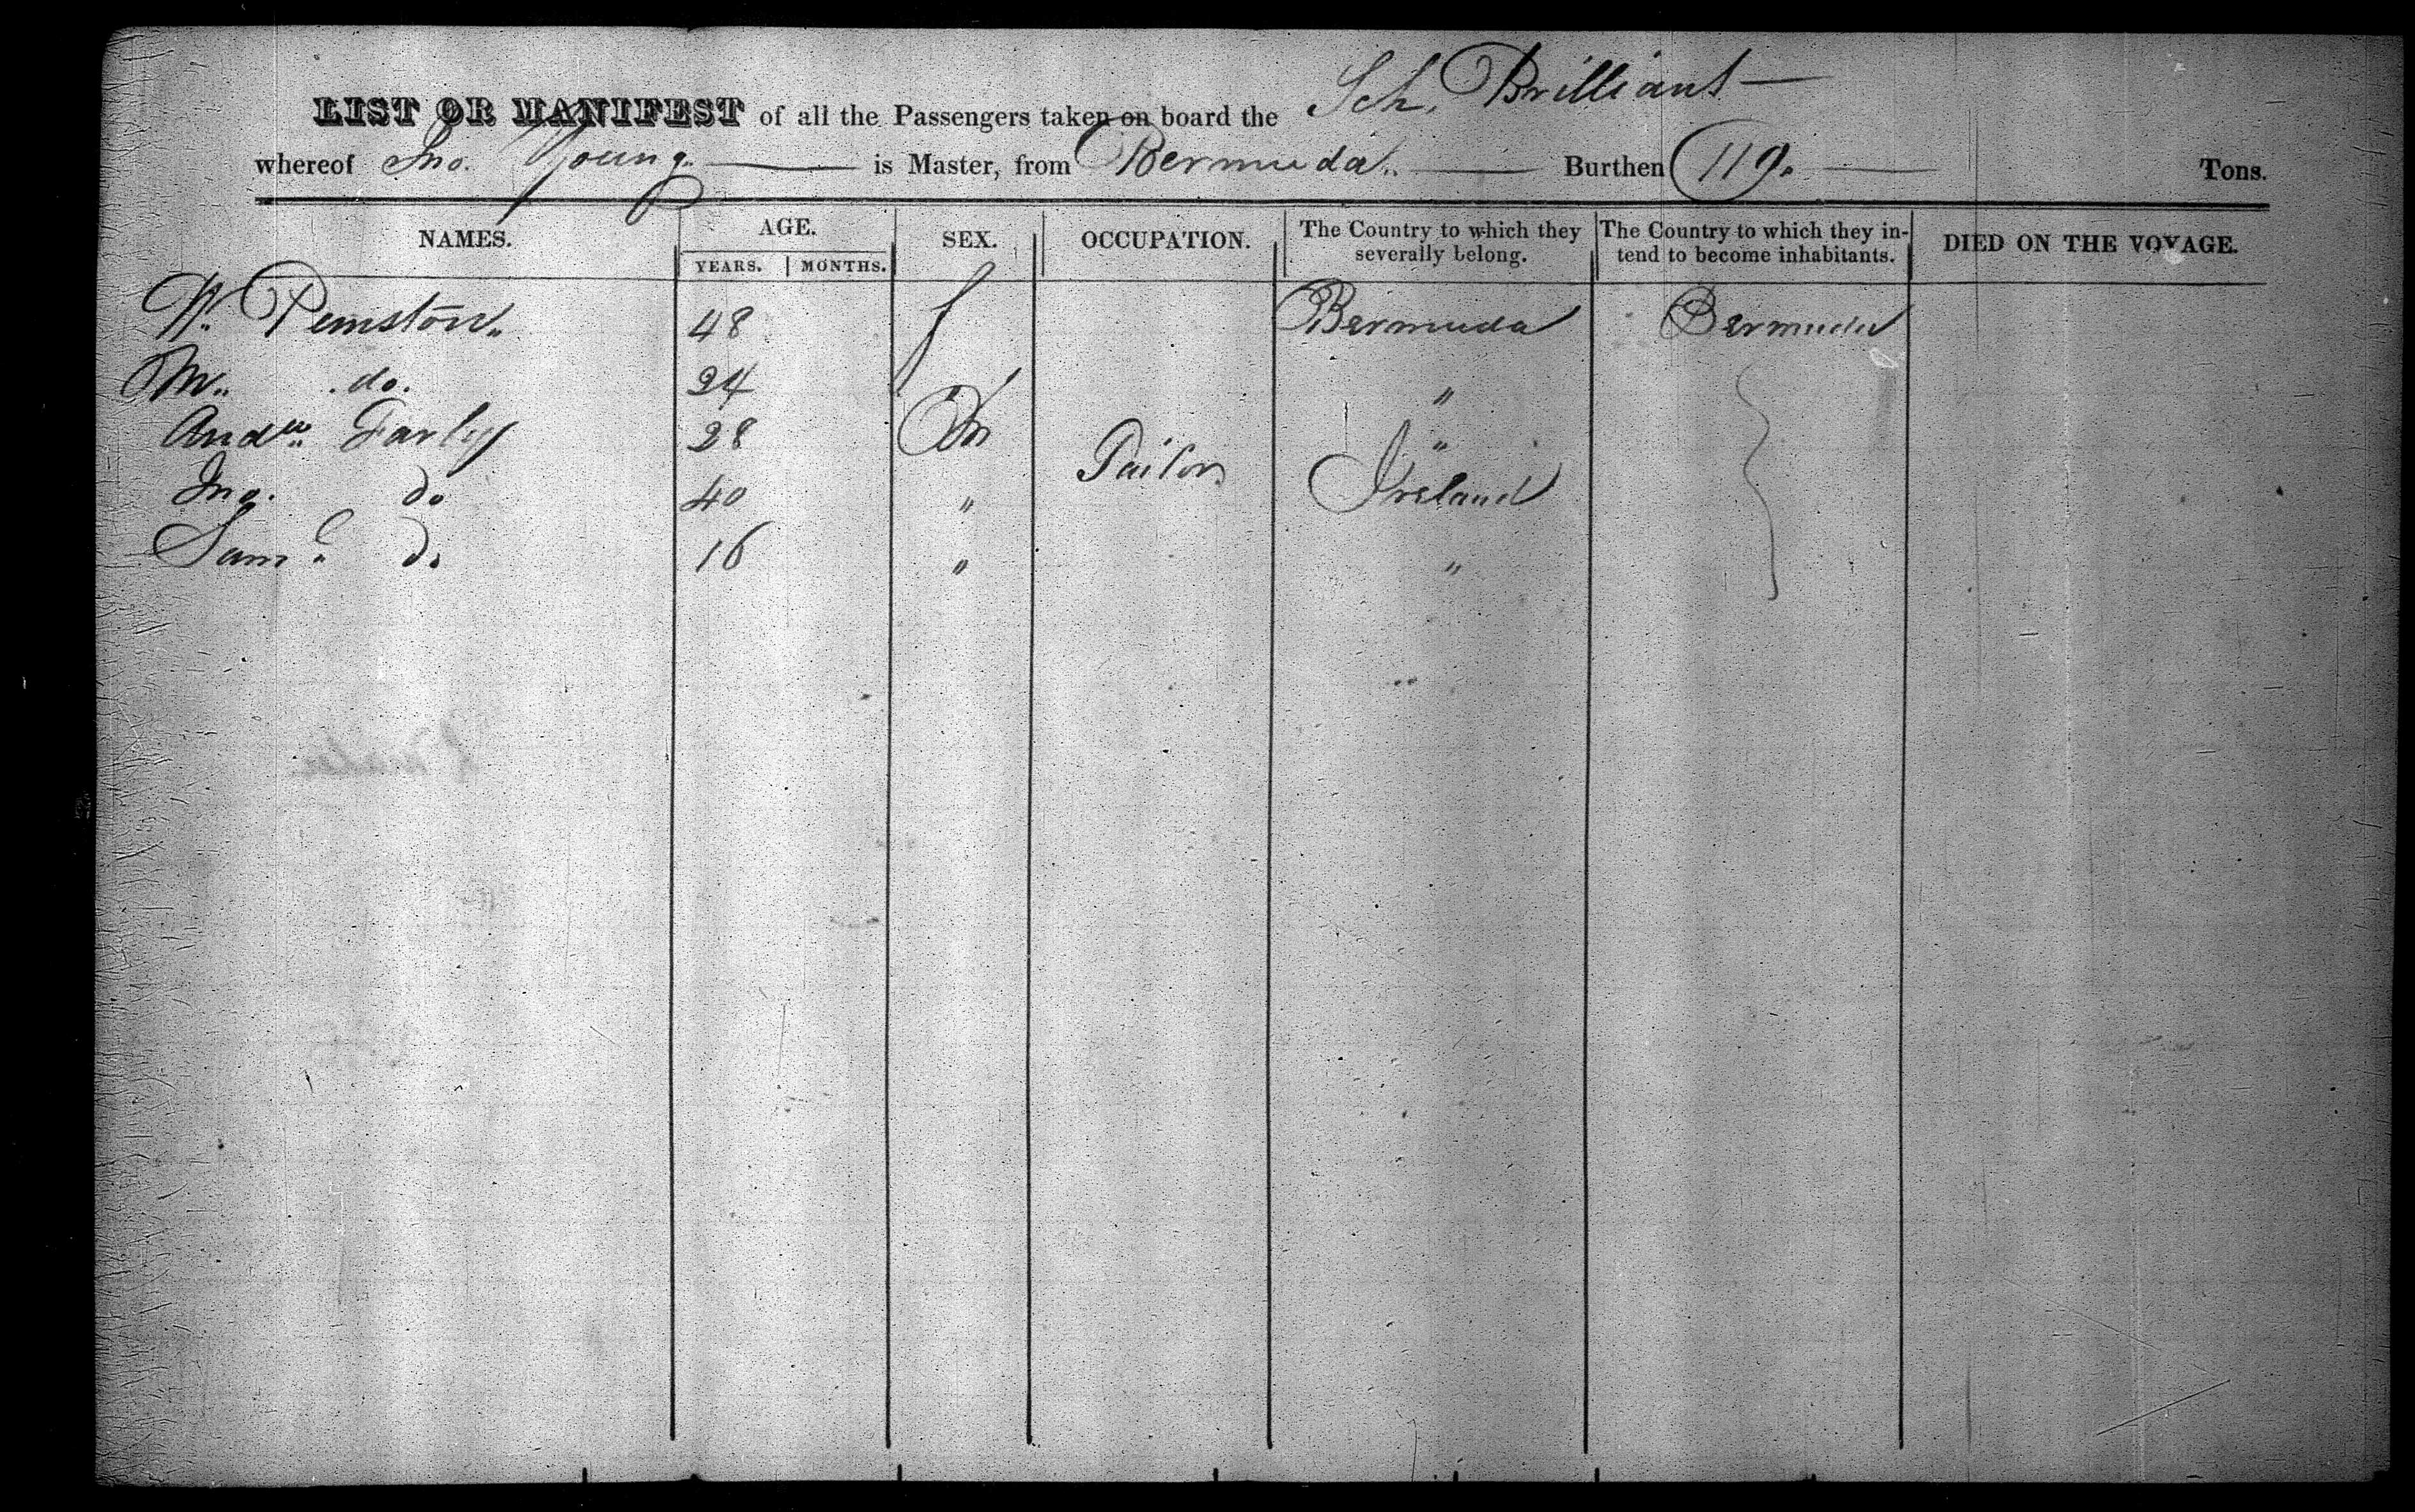 LIST OR MANIFEST of all the Passengers taken on board the Sch. Brilliant
whereof Jno. Young. is Master, from Bermuda. Burthen 119. Tons.
NAMES. AGE. SEX. OCCUPATION. The Country to which they severally belong. The Country to which they intend to become inhabitants. DIED ON THE VOYAGE.
YEARS. MONTHS.
Peniston 48 f Bermuda Bermuda
M. do. 24 "
Andw. Farley 28 M "
Jno. do 40 " Tailor Ireland
Saml. do 16 " "